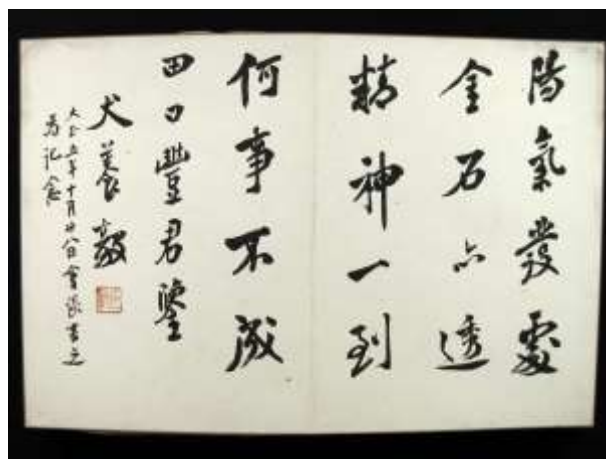 陽氣發處
金石亦透
精神一到
何事不成
田口豐君鑒
犬養毅
大正五年十月廿八日會談書之
為記念